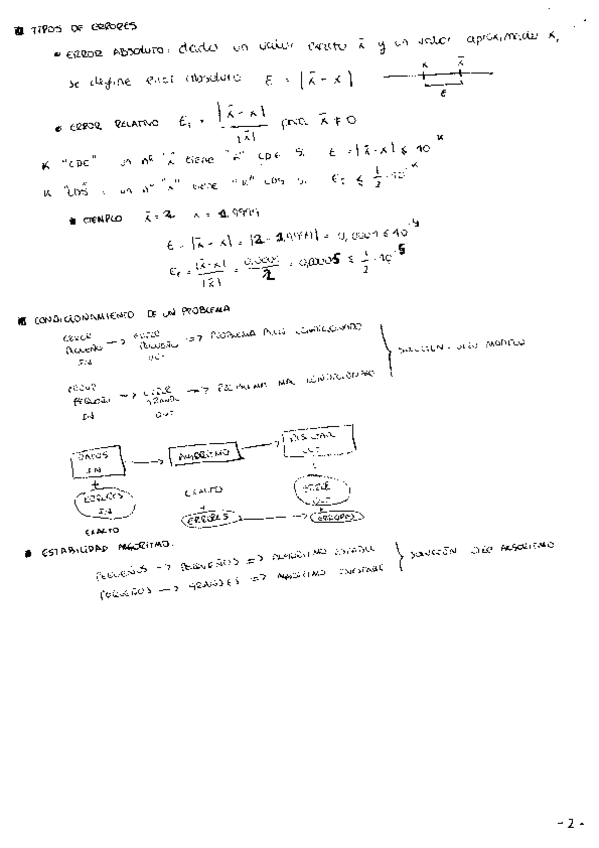 TIPOS DE ERRORES
• ERROR ABSOLUTO: dado un valor exacto x̄ y un valor aproximado x,
se define error absoluto E = |x̄ - x|
x x̄
E
• ERROR RELATIVO Er = |x̄ - x| / |x̄| para x̄ ≠ 0
K "CDE" un nº x̄ tiene "K" CDE si E = |x̄ - x| ≤ 10^-K
K "CDS" un nº "x" tiene "K" CDS si Er ≤ 1/2 · 10^-K
EJEMPLO x̄ = 2 x = 1.9999
E = |x̄ - x| = |2 - 1,9999| = 0,0001 ≤ 10^-4
Er = |x̄ - x| / |x̄| = 0,0001 / 2 = 0,00005 ≤ 1/2 · 10^-5
CONDICIONAMIENTO DE UN PROBLEMA
ERROR PEQUEÑO IN → ERROR PEQUEÑO OUT => PROBLEMA BIEN CONDICIONADO
ERROR PEQUEÑO IN → ERROR GRANDE OUT => PROBLEMA MAL CONDICIONADO
SOLUCIÓN: OTRO MODELO
DATOS IN → ALGORITMO →
+
ERRORES IN
EXACTO
EXACTO
+
ERRORES → ERRORES
ERROR OUT
+
ESTABILIDAD ALGORITMO.
PEQUEÑOS → PEQUEÑOS => ALGORITMO ESTABLE
PEQUEÑOS → GRANDES => ALGORITMO INESTABLE
SOLUCIÓN OTRO ALGORITMO
- 2 -